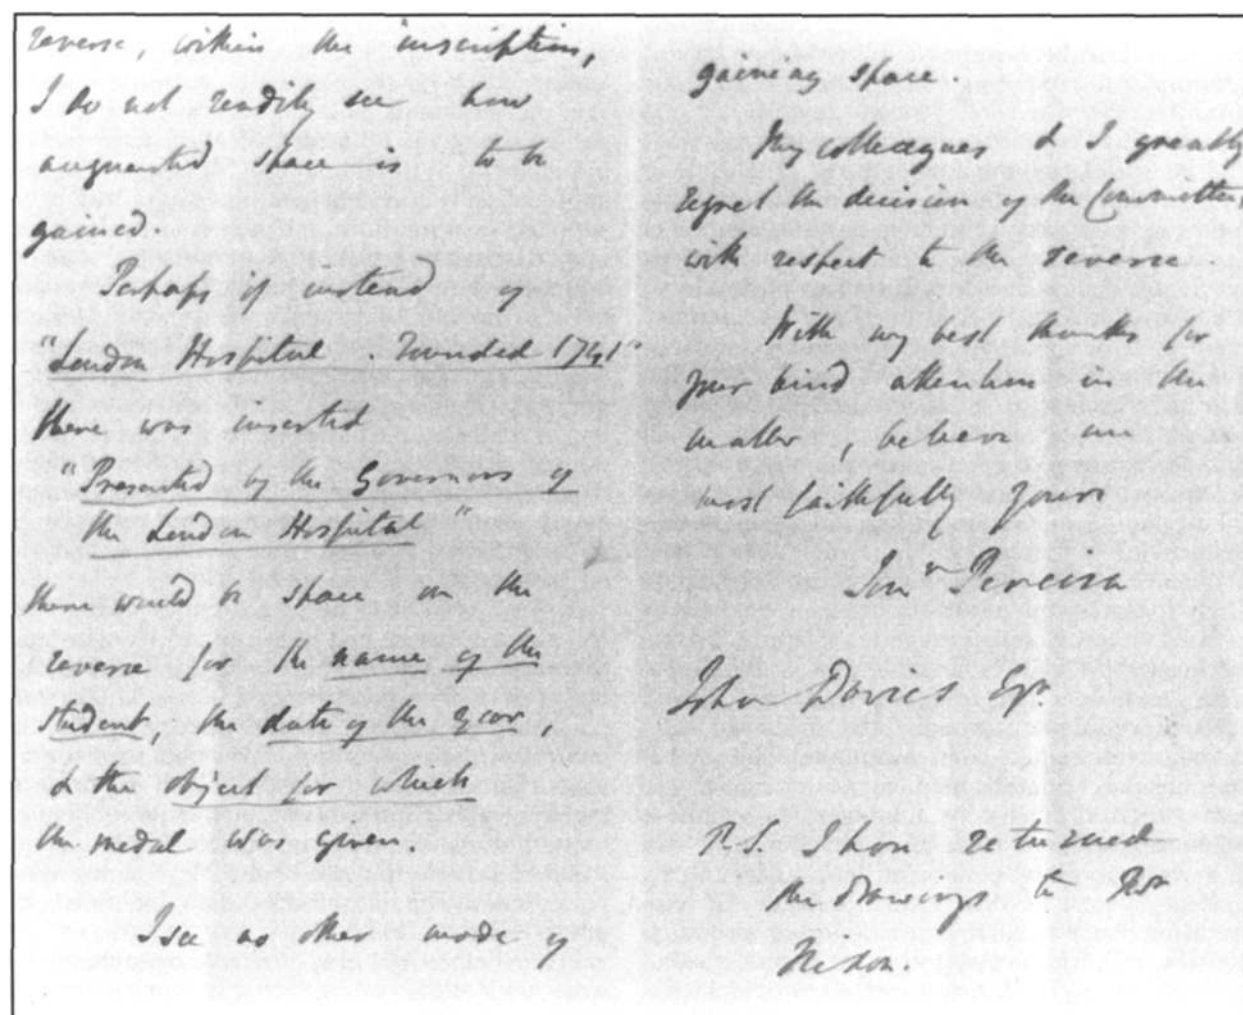 reverse, within the inscription,
I do not readily see how
augmented space is to be
gained.
Perhaps if instead of
"London Hospital . Founded 1741"
there was inserted
"Presented by the Governors of
the London Hospital"
there would be space on the
reverse for the name of the
student, the date of the year,
& the object for which
the medal was given.
I see no other mode of
gaining space.
My colleagues & I greatly
regret the decision of the Committee,
with respect to the reverse
With my best thanks for
your kind attention in the
matter, believe me
most faithfully yours
Jonn Pereira
John Davies Esqr.
P.S. I have returned
the drawings to Mr
Nixon.